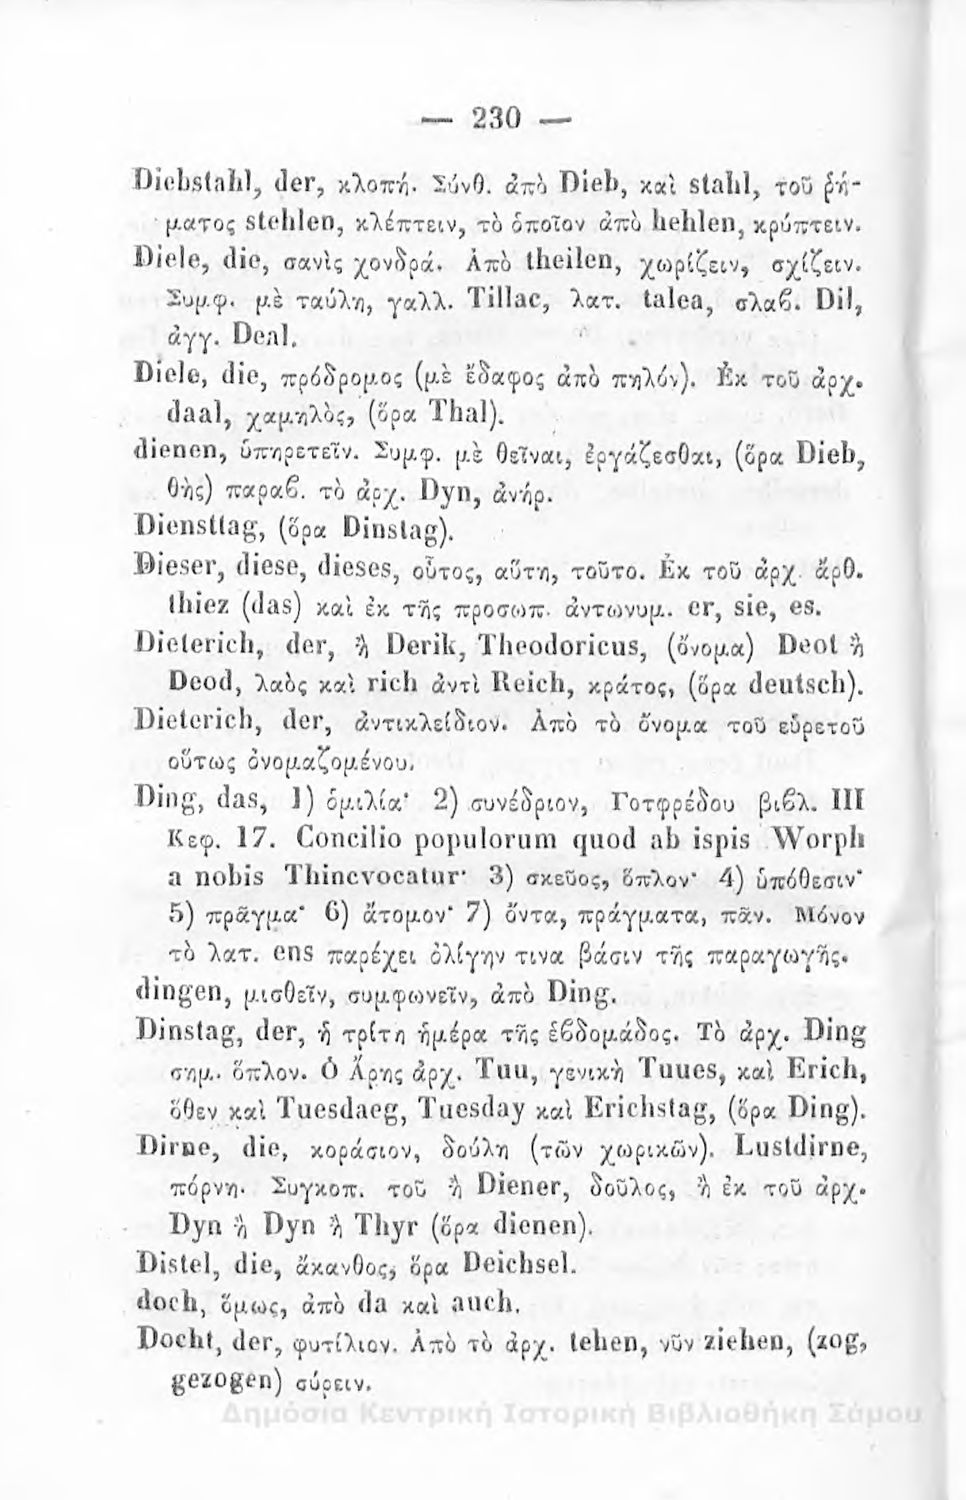 — 230 —
Diebstahl, der, κλοπή. Σύνθ. ἀπὸ Dieb, καὶ stahl, τοῦ ῥή-
ματος stehlen, κλέπτειν, τὸ ὁποῖον ἀπὸ hehlen, κρύπτειν.
Diele, die, σανὶς χονδρά. Ἀπὸ theilen, χωρίζειν, σχίζειν.
Συμφ. μὲ ταύλη, γαλλ. Tillac, λατ. talea, σλαϐ. Dil,
ἀγγ. Deal.
Diele, die, πρόδρομος (μὲ ἔδαφος ἀπὸ πηλόν). Ἐκ τοῦ ἀρχ.
daal, χαμηλὸς, (ὅρα Thal).
dienen, ὑπηρετεῖν. Συμφ. μὲ θεῖναι, ἐργάζεσθαι, (ὅρα Dieb,
θὴς) παραϐ. τὸ ἀρχ. Dyn, ἀνήρ.
Diensttag, (ὅρα Dinstag).
Dieser, diese, dieses, οὗτος, αὕτη, τοῦτο. Ἐκ τοῦ ἀρχ. ἄρθ.
thiez (das) καὶ ἐκ τῆς προσωπ. ἀντωνυμ. er, sie, es.
Dieterich, der, ἢ Derik, Theodoricus, (ὄνομα) Deot ἢ
Deod, λαὸς καὶ rich ἀντὶ Reich, κράτος, (ὅρα deutsch).
Dieterich, der, ἀντικλείδιον. Ἀπὸ τὸ ὄνομα τοῦ εὑρετοῦ
οὕτως ὀνομαζομένου.
Ding, das, 1) ὁμιλία· 2) συνέδριον, Γοτφρέδου βιϐλ. III
Κεφ. 17. Concilio populorum quod ab ispis Worph
a nobis Thincvocatur· 3) σκεῦος, ὅπλον· 4) ὑπόθεσιν·
5) πρᾶγμα· 6) ἄτομον· 7) ὄντα, πράγματα, πᾶν. Μόνον
τὸ λατ. ens παρέχει ὀλίγην τινα βάσιν τῆς παραγωγῆς.
dingen, μισθεῖν, συμφωνεῖν, ἀπὸ Ding.
Dinstag, der, ἡ τρίτη ἡμέρα τῆς ἑϐδομάδος. Τὸ ἀρχ. Ding
σημ. ὅπλον. Ὁ Ἄρης ἀρχ. Tuu, γενικὴ Tuues, καὶ Erich,
ὅθεν καὶ Tuesdaeg, Tuesday καὶ Erichstag, (ὅρα Ding).
Dirne, die, κοράσιον, δούλη (τῶν χωρικῶν). Lustdirne,
πόρνη. Συγκοπ. τοῦ ἢ Diener, δοῦλος, ἢ ἐκ τοῦ ἀρχ.
Dyn ἢ Dyn ἢ Thyr (ὅρα dienen).
Distel, die, ἄκανθος, ὅρα Deichsel.
doch, ὅμως, ἀπὸ da καὶ auch.
Docht, der, φυτίλιον. Ἀπὸ τὸ ἀρχ. tehen, νῦν ziehen, (zog,
gezogen) σύρειν.
Δημόσια Κεντρική Ιστορική Βιβλιοθήκη Σάμου